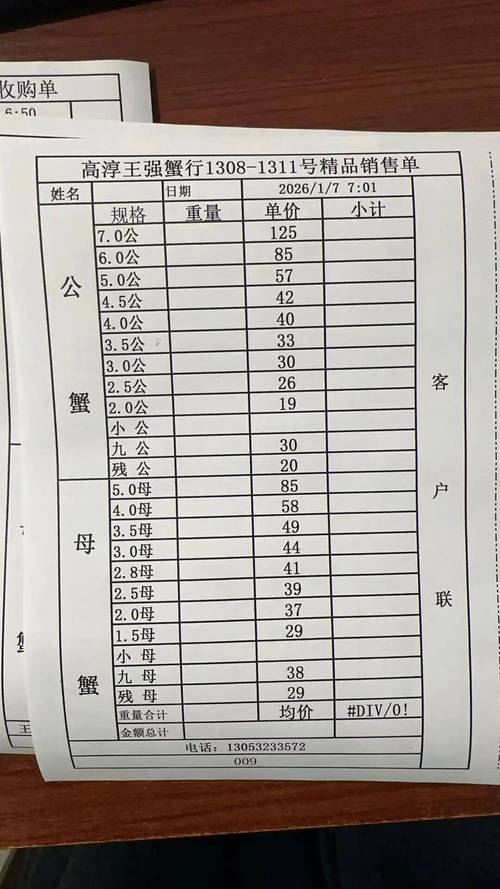 收购单
6:50
高淳王强蟹行1308-1311号精品销售单
姓名 日期 2026/1/7 7:01
规格 重量 单价 小计
公蟹
7.0公 125
6.0公 85
5.0公 57
4.5公 42
4.0公 40
3.5公 33
3.0公 30
2.5公 26
2.0公 19
小 公
九 公 30
残 公 20
母蟹
5.0母 85
4.0母 58
3.5母 49
3.0母 44
2.8母 41
2.5母 39
2.0母 37
1.5母 29
小 母
九 母 38
残 母 29
重量合计 均价 #DIV/0!
金额总计
电话：13053233572
009
客户联
王